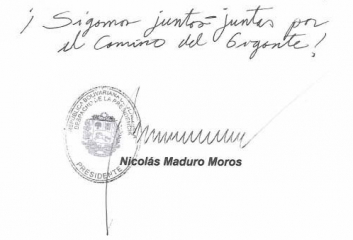 ¡Sigamos juntos-juntas por
el Camino del Gigante!
REPÚBLICA BOLIVARIANA
DESPACHO DE LA
PRESIDENTE
Nicolás Maduro Moros